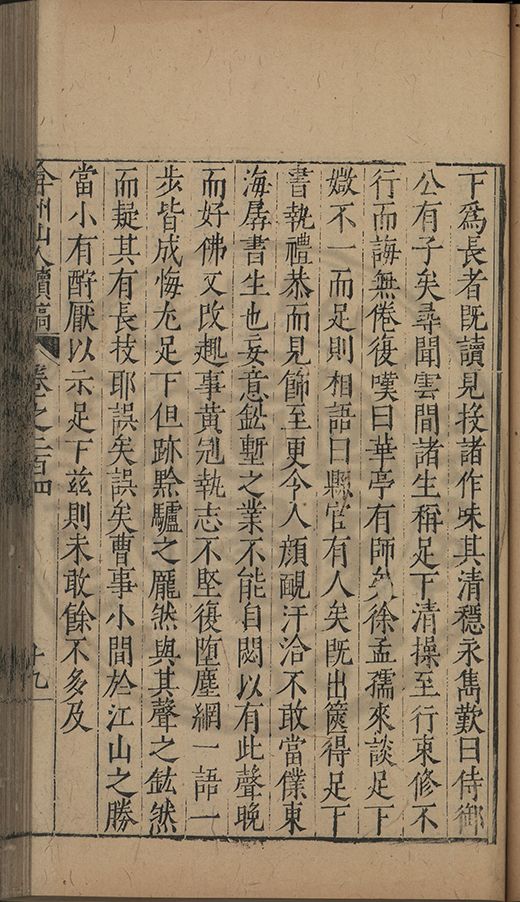 下爲長者既讀見投諸作味其清穩永雋歎曰侍御
公有子矣尋聞雲間諸生稱足下清操至行束修不
行而誨無倦復嘆曰華亭有師矣徐孟孺來談足下
媺不一而足則相語曰縣官有人矣既出篋得足下
書執禮恭而見飾至更令人顔靦汗洽不敢當僕東
海孱書生也妄意鈆塹之業不能自閟以有此聲晚
而好佛又改趣事黄冠執志不堅復墮塵網一語一
步皆成悔尤足下但跡黔驢之龎然與其聲之鈜然
而疑其有長技耶誤矣誤矣曹事小間於江山之勝
當小有酧厭以示足下兹則未敢餘不多及
弇州山人續稿 卷之二百四 十九